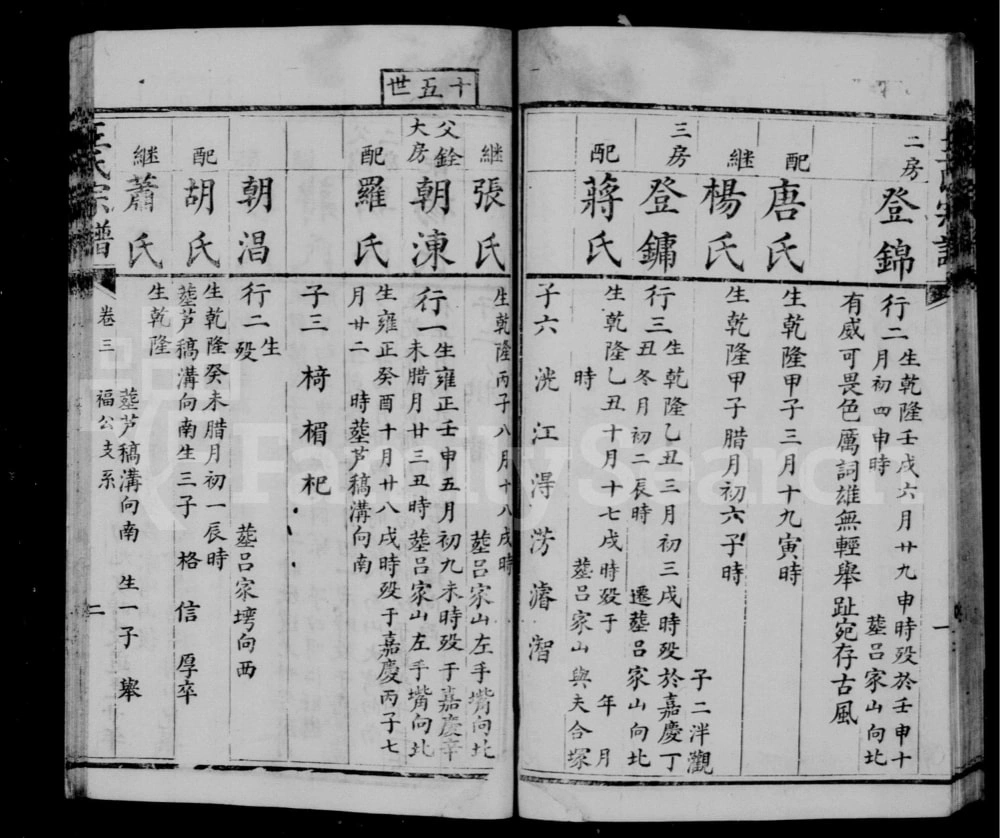 二房 登錦
行二 生乾隆壬戌六月廿九申時殁於壬申十
月初四申時 塟呂家山向北
有威可畏色厲詞雄無輕舉趾宛存古風
配 唐氏
生乾隆甲子三月十九寅時
継 楊氏
生乾隆甲子腊月初六子時
子二泮觀
三房 登鏞
行三 生乾隆乙丑三月初三戌時殁於嘉慶丁
丑冬月初二辰時 遷塟呂家山向北
配 蔣氏
生乾隆乙丑十月十七戌時殁于 年 月
時 塟呂家山與夫合塚
子六 洸 江 淂 涝 濬 智
十五世
継 張氏
生乾隆丙子八月十八戌時 塟呂家山左手嘴向北
父銓
大房 朝涷
行一生雍正壬申五月初九未時殁于嘉慶辛
未腊月廿三丑時塟呂家山左手嘴向北
配 羅氏
生雍正癸酉十月廿八戌時殁于嘉慶丙子七
月廿二 時塟芦稿溝向南
子三 椅 楣 杞
朝淐
行二 生
殁 塟呂家塆向西
配 胡氏
生乾隆癸未腊月初一辰時
塟芦稿溝向南生三子 格 信 厚卒
継 蕭氏
生乾隆
塟芦稿溝向南 生一子 舉
王氏宗譜
卷三 福公支系
二
一
FamilySearch